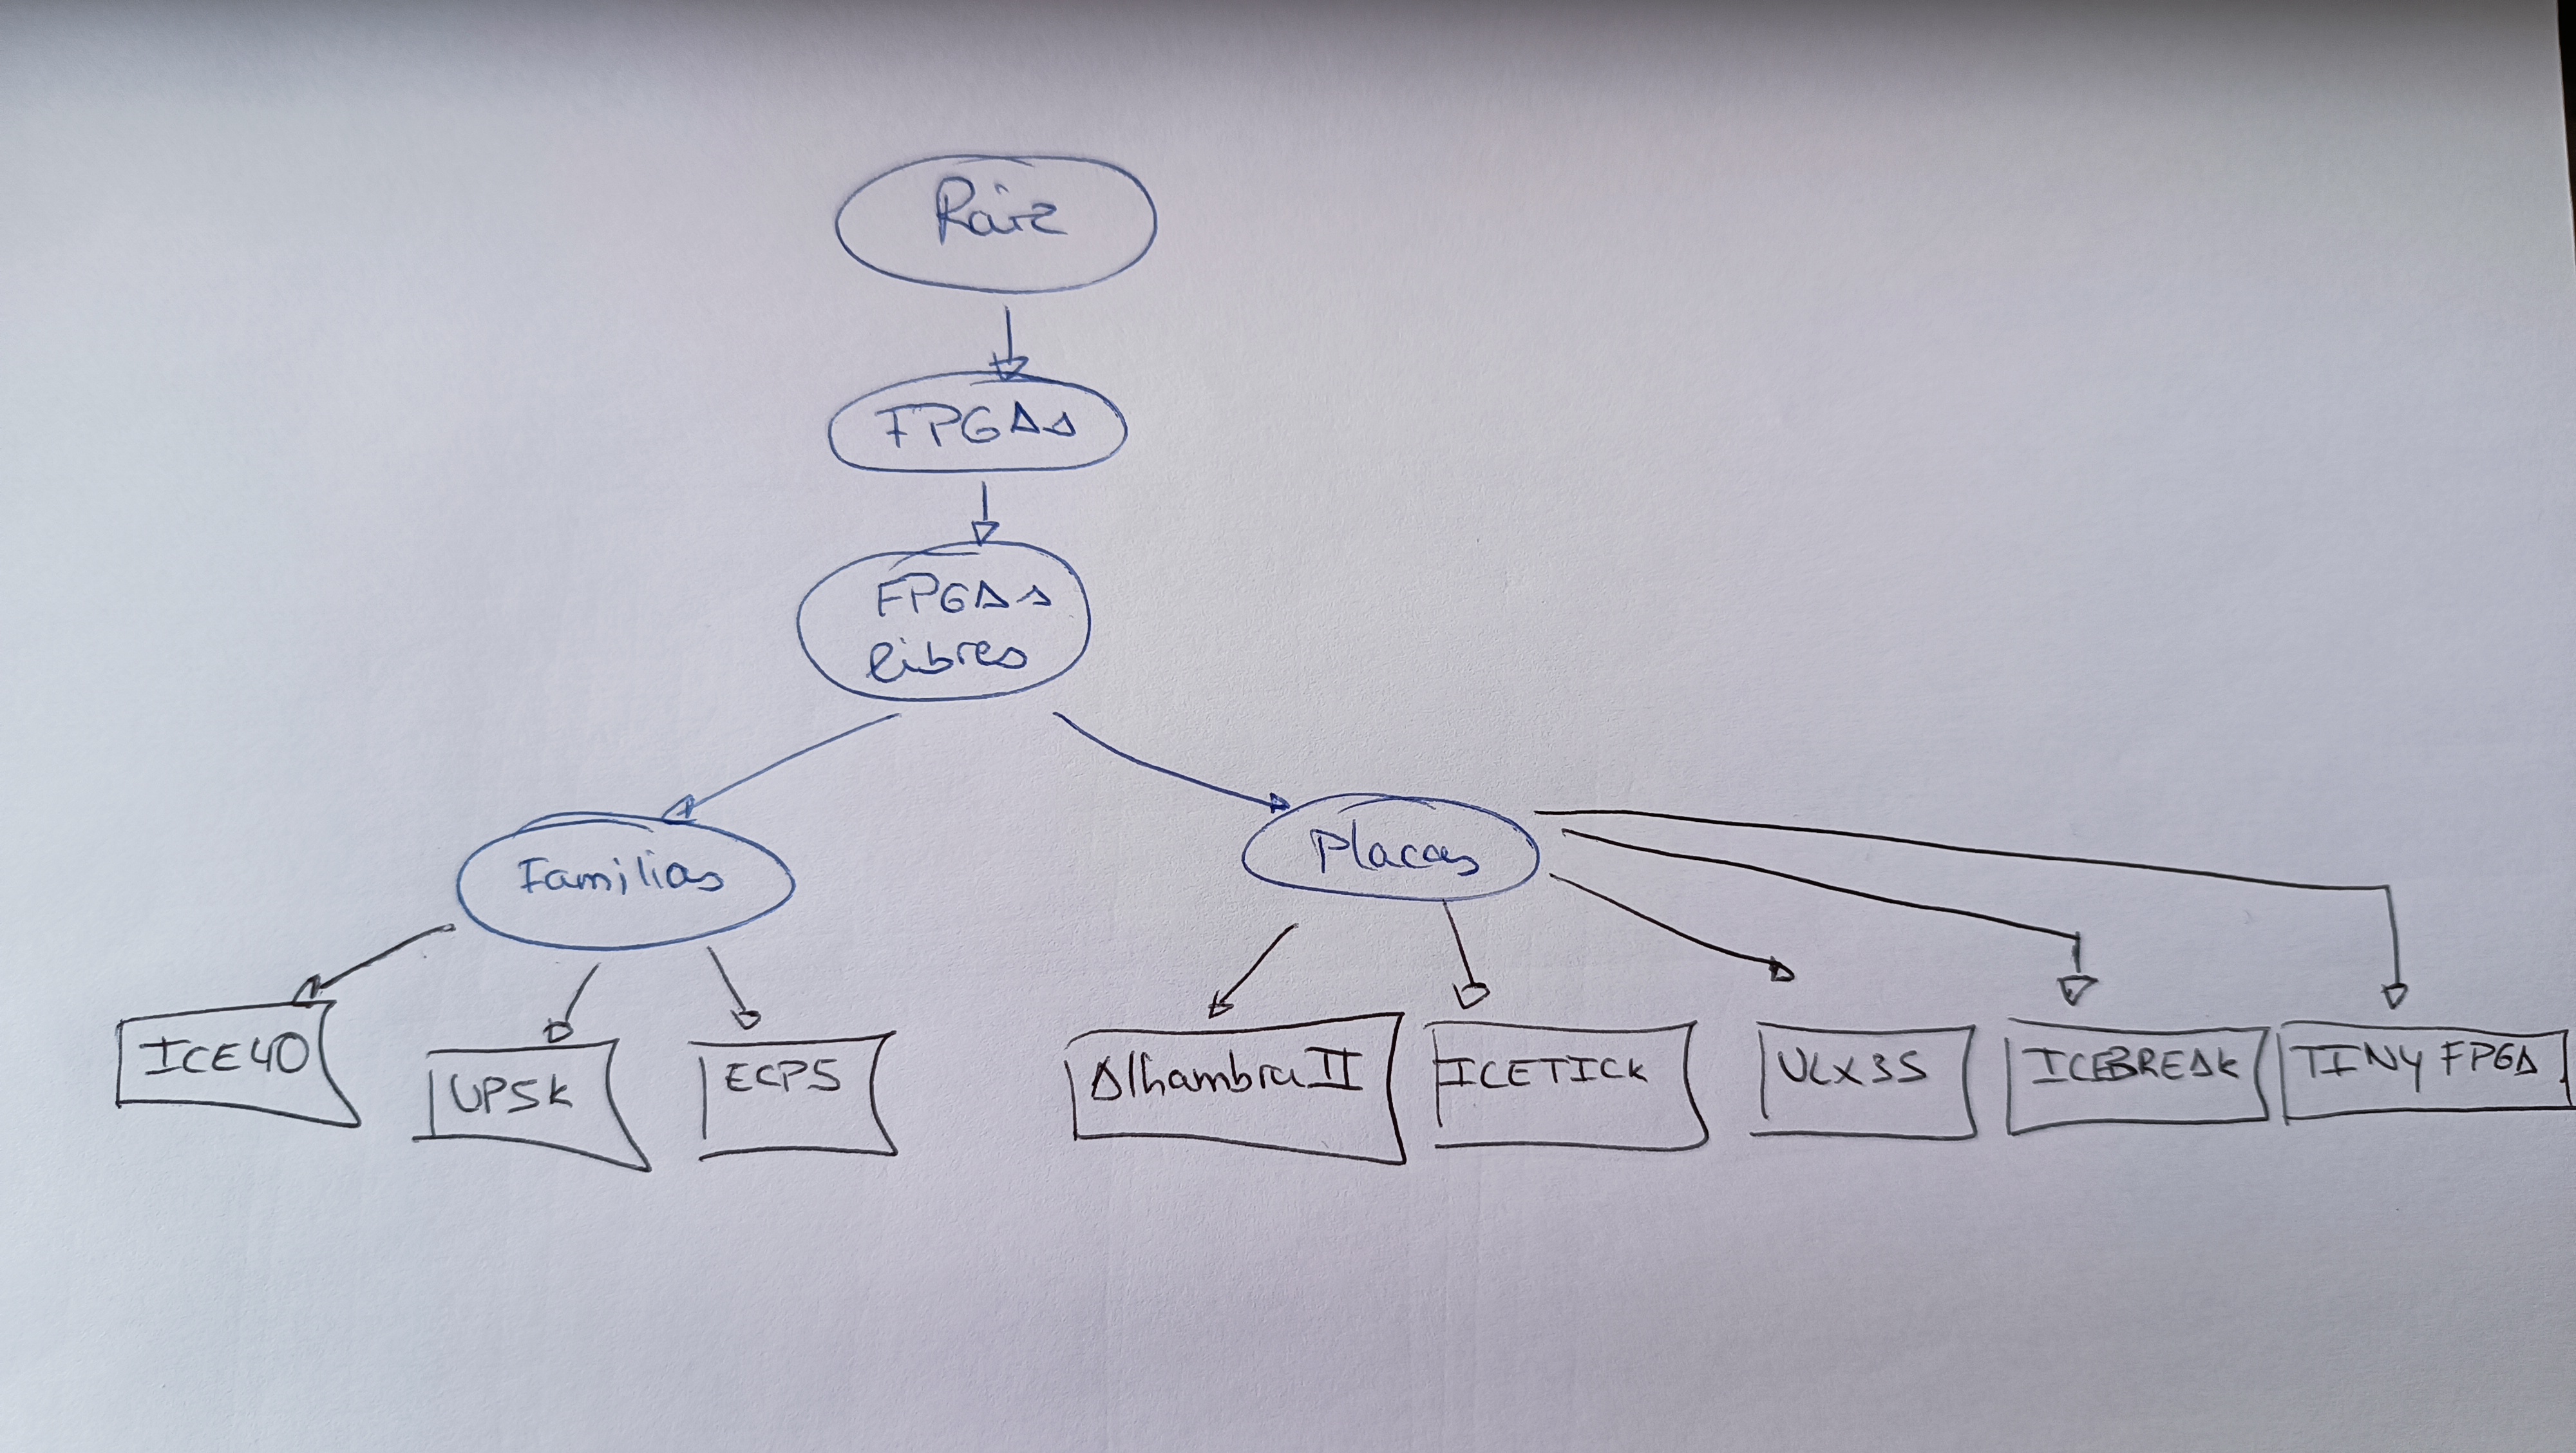 Raiz
FPGAs
FPGAs
libres
Familias
Placas
ICE40
UP5K
ECP5
Alhambra II
ICETICK
ULX3S
ICEBREAK
TINY FPGA